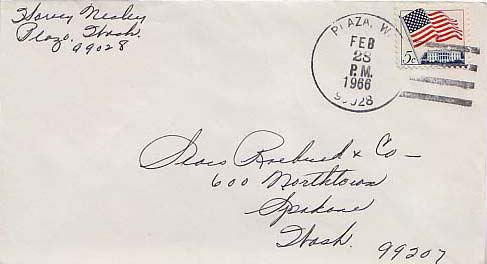 Harvey Nealey
Plaza, Wash.
99028
PLAZA, W
FEB
28
P.M.
1966
99028
5c
Sears Roebuck & Co —
600 Northtown
Spokane
Wash. 99207